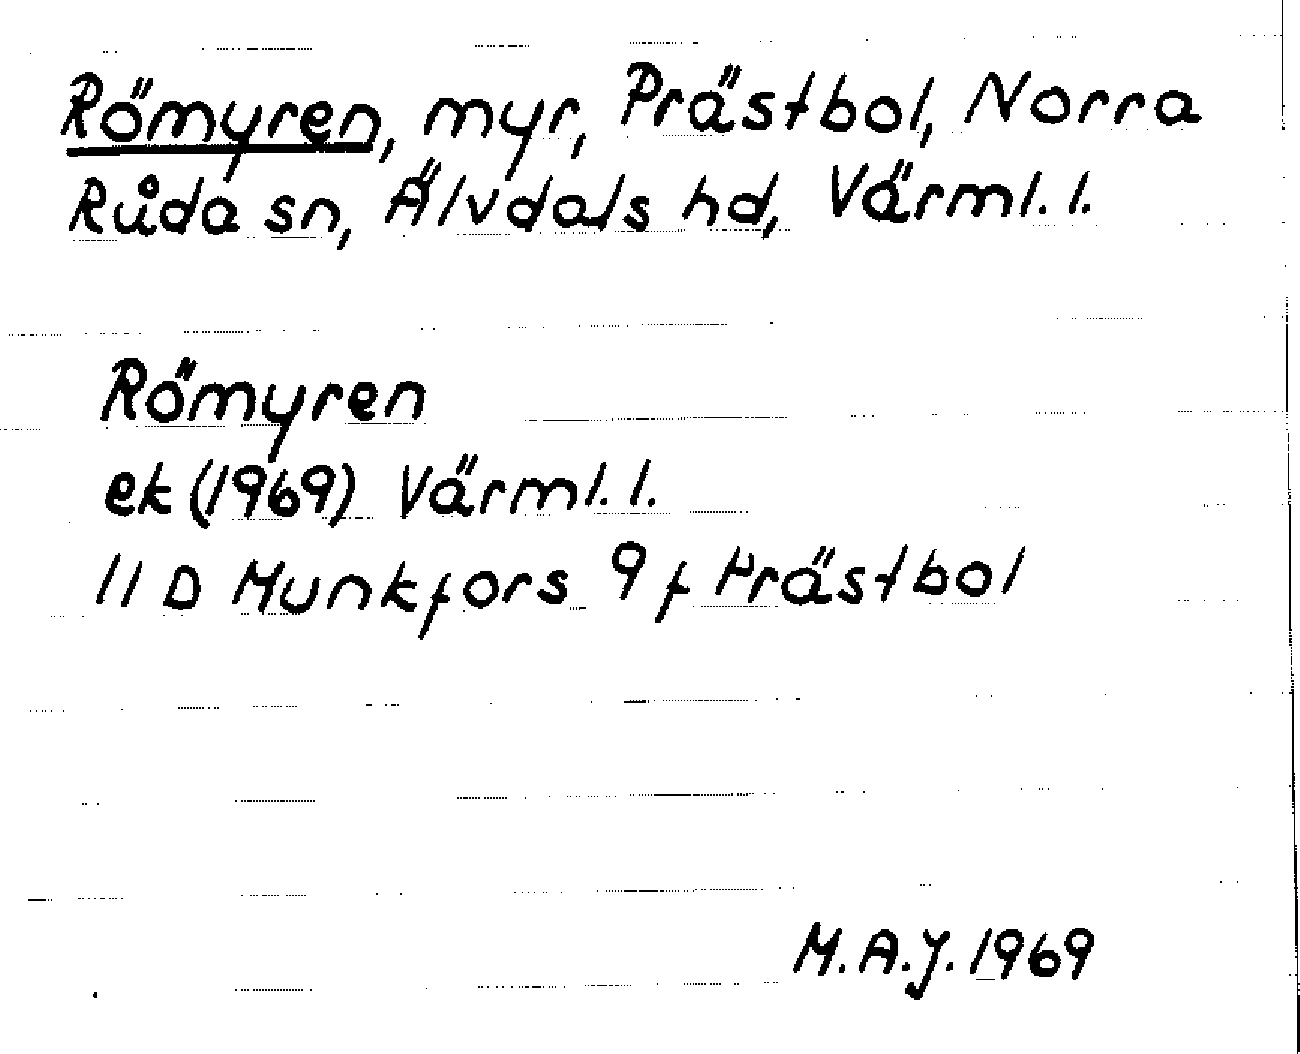 Römyren, myr, Prästbol, Norra
Råda sn, Älvdals hd, Värml. l.
Römyren
ek (1969) Värml. l.
11 D Munkfors 9 f Prästbol
M.A.J. 1969